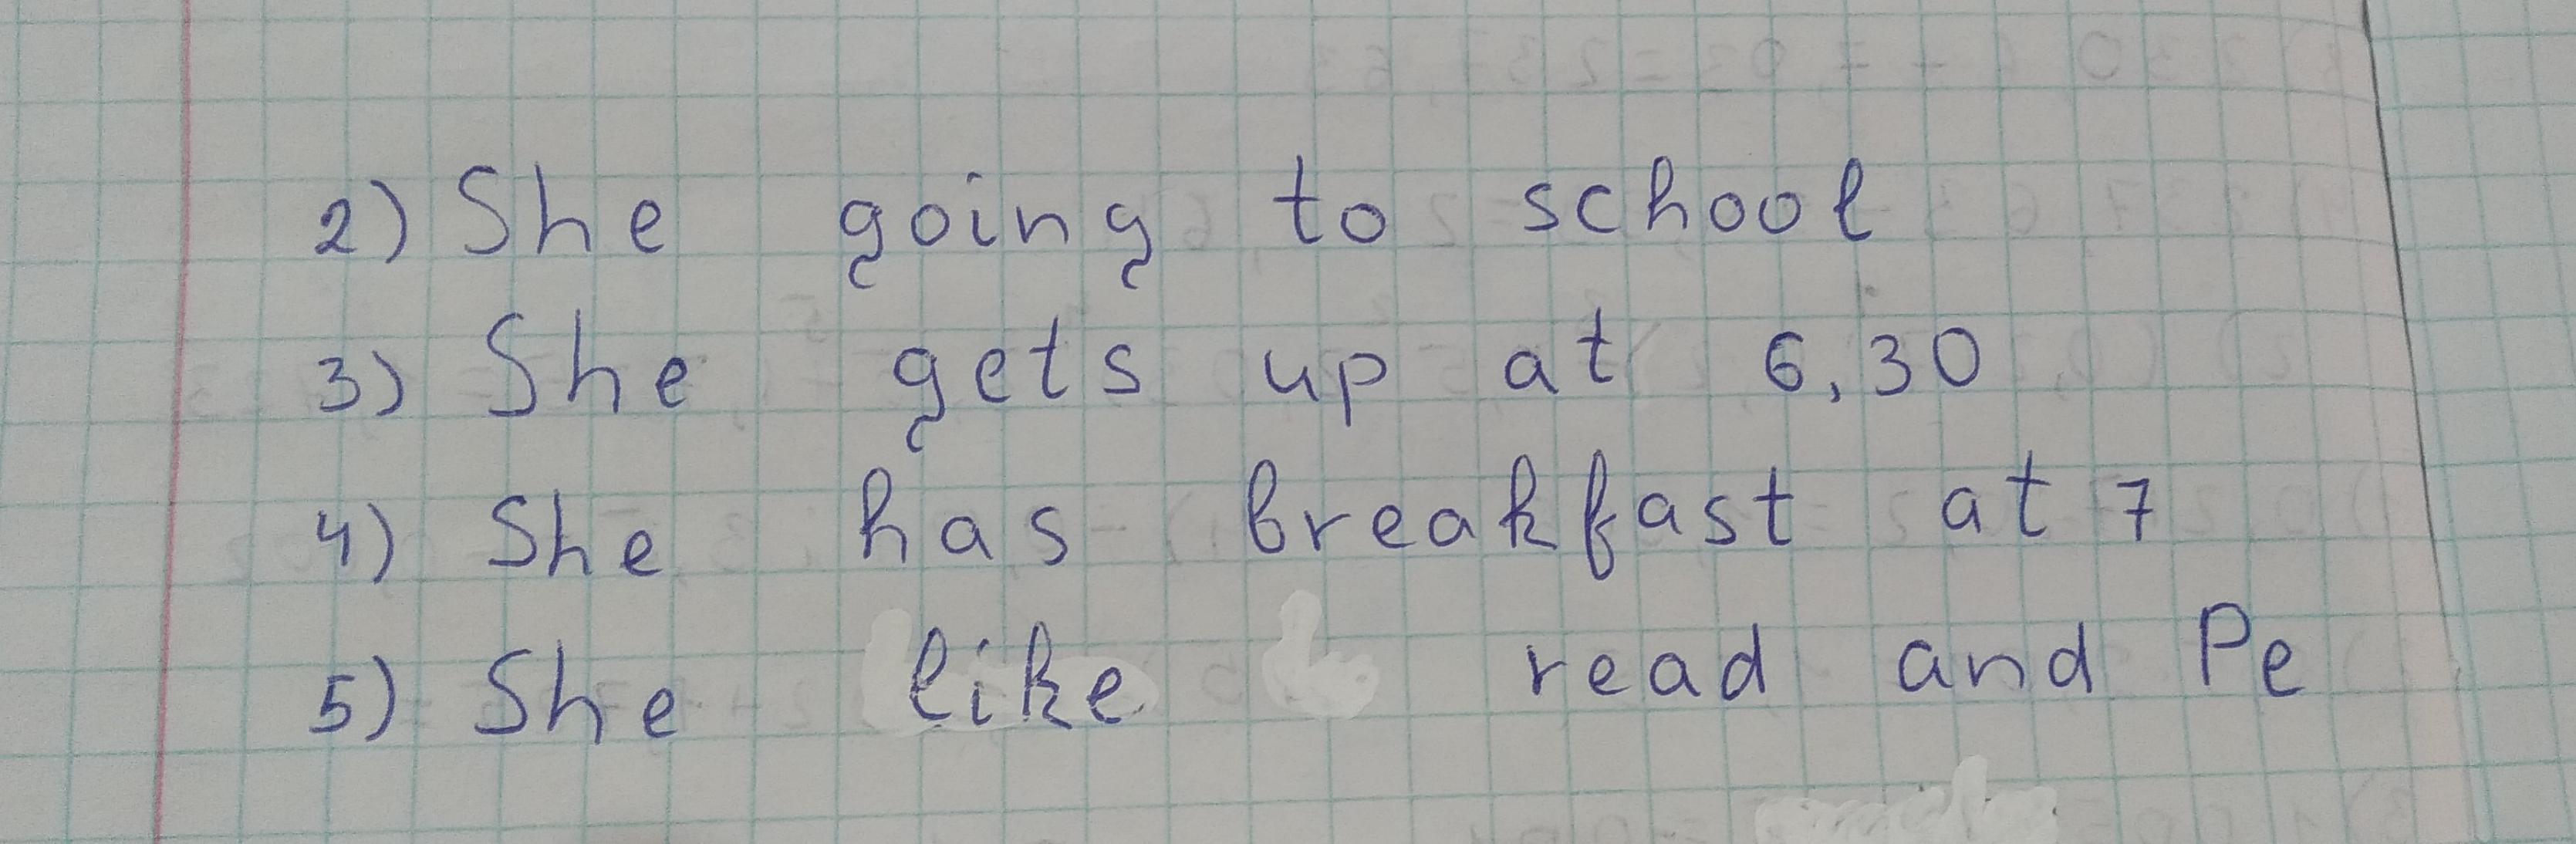 2) She going to school
3) She gets up at 6,30
4) She has breakfast at 7
5) She like read and Pe